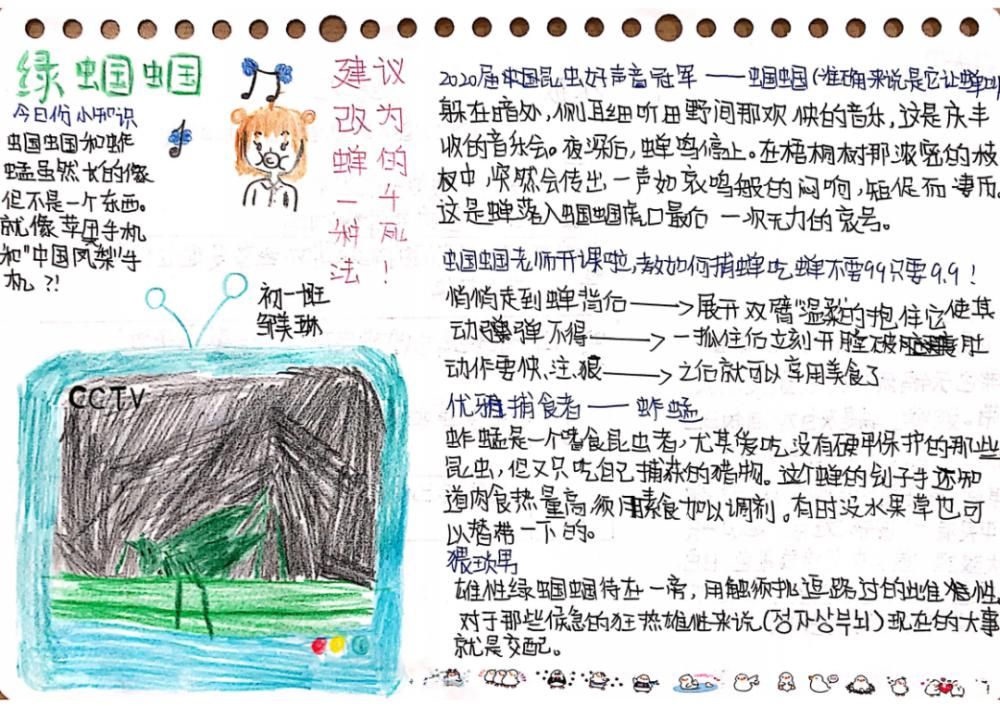 绿蝈蝈
今日份小知识
蝈蝈和蚱
蜢虽然长的像
但不是一个东西。
就像苹果手机
和"中国凤梨"手
机?!
建议
改为
蝉的
一千
种死
法!
初一班
CCTV
2020届中国昆虫好声音冠军——蝈蝈(准确来说是它让蝉叫)
躲在暗处,侧耳细听田野间那欢快的音乐,这是庆丰
收的音乐会。夜深后,蝉鸣停止。在梧桐树那浓密的枝
杈中,突然会传出一声如哀鸣般的闷响,短促而凄厉。
这是蝉落入蝈蝈虎口最后一次无力的哀号。
蝈蝈老师开课啦,教如何捕蝉吃蝉不要99只要9.9!
悄悄走到蝉背后——>展开双臂"温柔"的抱住它使其
动弹不得——>一抓住后立刻开膛破肚
动作要快、注、狠——>之后就可以享用美食了
优雅捕食者——蚱蜢
蚱蜢是一个嗜食昆虫者,尤其爱吃没有硬甲保护的那些
昆虫,但又只吃自己捕杀的猎物。这个蝉的刽子手还知
道肉食热量高,须用素食加以调剂。有时没水果草也可
以替带一下的。
猥琐男
雄性绿蝈蝈待在一旁,用触须挑逗路过的雌性。
对于那些猴急的狂热雄性来说(정자상부뇌)现在的大事
就是交配。